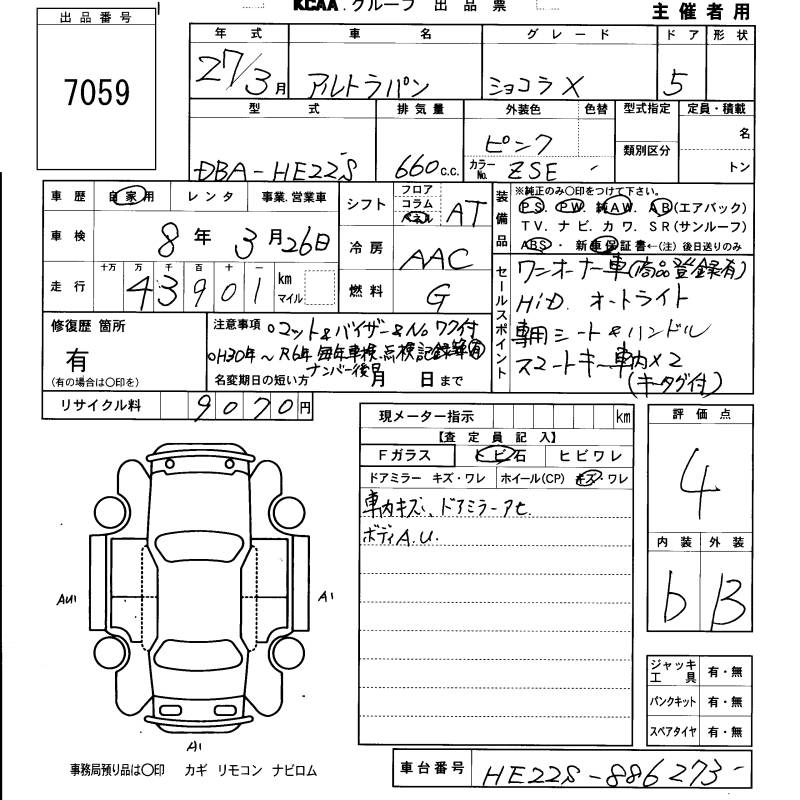 KCAA.グループ 出品票
主催者用
出品番号
7059
年式 車名 グレード ドア 形状
27/3月 アルトラパン ショコラX 5
型式 排気量 外装色 色替 型式指定 定員・積載
ピンク 名
類別区分
DBA-HE22S 660c.c. カラーNo. ZSE トン
車歴 自家用 レンタ 事業.営業車
シフト フロア コラム パネル AT
装備品
※純正のみ〇印をつけて下さい。
PS. PW. 純AW. AB(エアバック)
TV. ナビ. カワ. SR(サンルーフ)
ABS・新車保証書←(注)後日送りのみ
車検 8年3月26日
冷房 AAC
走行 十万 万 千 百 十 一
43901 km マイル
燃料 G
セールスポイント
ワンオーナー車(商品登録有)
HiD. オートライト
専用シート&ハンドル
スマートキー車内×2
(キータグ付)
修復歴 箇所
有
(有の場合は〇印を)
注意事項 。マット&バイザー&No.ワク付
。H30年～R6年 毎年車検.点検記録簿有
ナンバー後日
名変期日の短い方 月 日まで
リサイクル料 9070円
現メーター指示 km
【査定員記入】
Fガラス トビ石 ヒビワレ
ドアミラー キズ・ワレ ホイール(CP) キズ・ワレ
車内キズ、ドアミラーアセ
ボディA.U.
評価点
4
内装 外装
b B
AU1
A1
A1
ジャッキ工具 有・無
パンクキット 有・無
スペアタイヤ 有・無
事務局預り品は〇印 カギ リモコン ナビロム
車台番号 HE22S-886273-